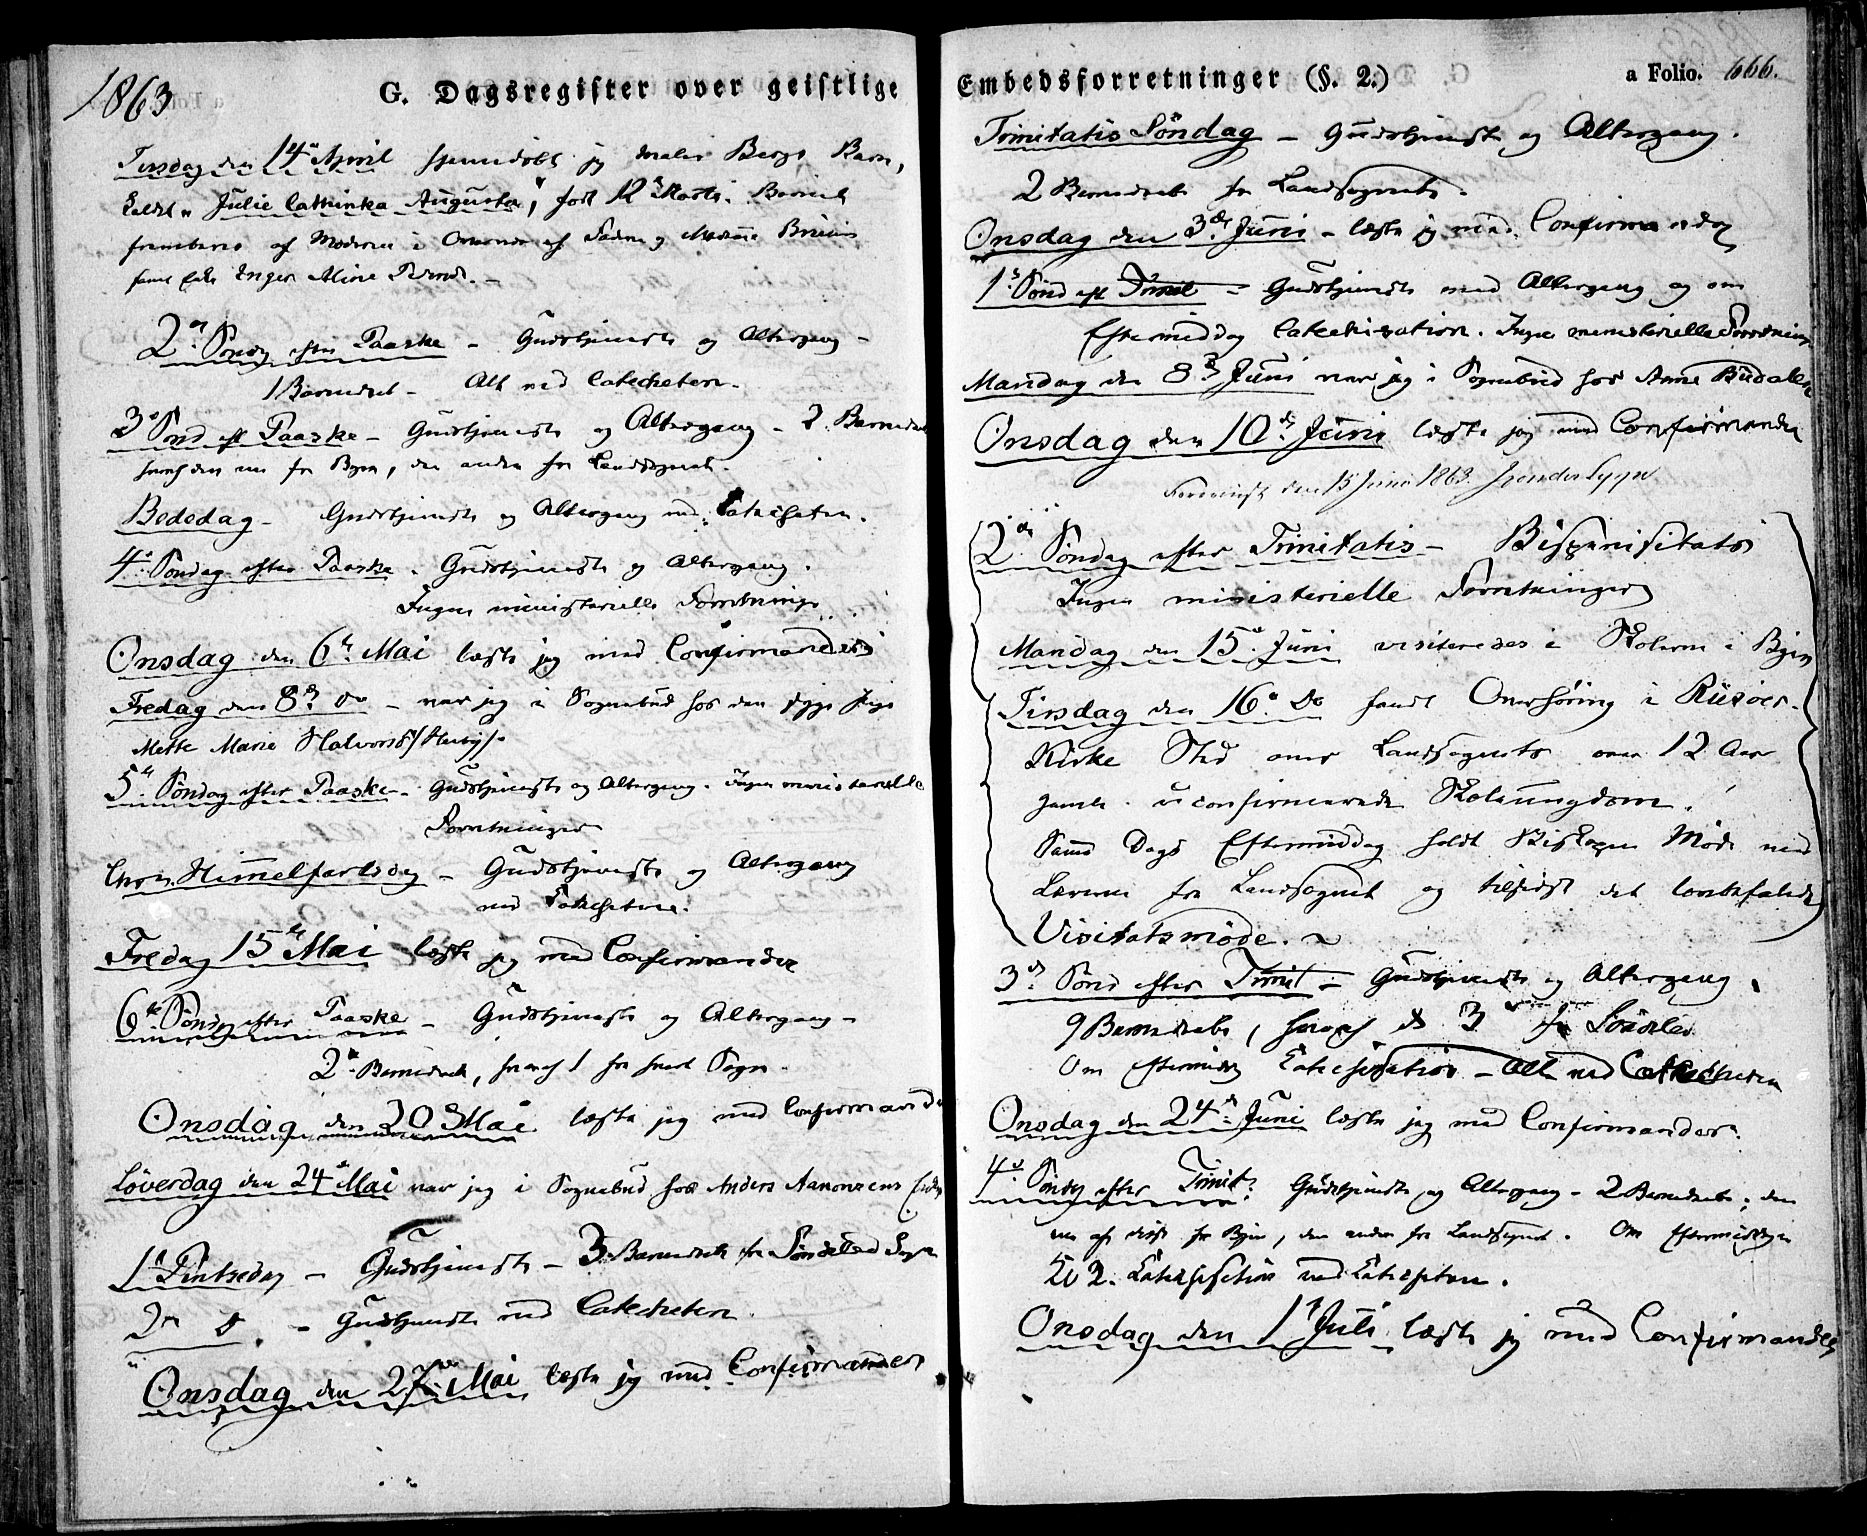 1863
G. Dagsregister over geistlige
Tirsdag den 14de April hjemmedøbt jeg Maler Bergs Barn,
kaldt "Julie Cathinka Augusta", født 12te Marts. Barnet
frembaret af Moderen i Overvær af Faderen og Madame
samt Inger Aline
2den Sønd. efter Paaske – Gudstjeneste og Altergang –
1 Barnedaab – Alt ved Catecheten.
3de Sønd eft Paaske – Gudstjeneste og Altergang – 2 Barnedaab
hvoraf den ene fra Byen, den anden fra Landsognet.
Bededag – Gudstjeneste og Altergang ved Catecheten.
4de Søndag efter Paaske. Gudstjeneste og Altergang.
Ingen ministerielle Forretninger
Onsdag den 6te Mai læste jeg med Confirmanderne
Fredag den 8de do – var jeg i Sognebud hos den syge Pige
Mette Marie Halvorsd
5te Søndag efter Paaske – Gudstjeneste og Altergang. Ingen ministerielle
Forretninger
Chr. Himmelfartsdag – Gudstjeneste og Altergang
ved Catecheten.
Fredag 15de Mai læste jeg med Confirmander
6te Sønd. efter Paaske – Gudstjeneste og Altergang –
2 Barnedaab, hvoraf 1 fra hvert Sogn.
Onsdag den 20de Mai læste jeg med Confirmand
Løverdag den 24de Mai var jeg i Sognebud hos Anders Aanonsens
1ste Pintsedag – Gudstjeneste – 3 Barnedaab fra Søndeled Sogn
2den do – Gudstjeneste ved Catecheten.
Onsdag den 27de Mai læste jeg med Confirmander
Embedsforretninger (§. 2.)
a Folio. 666.
Trinitatis Söndag – Gudstjeneste og Altergang.
2 Barnedaab fra Landsognet.
Onsdag den 3de Juni – læste jeg med Confirmander
1ste Sønd eft Trinit – Gudstjeneste med Altergang og om
Eftermiddag Catechisation. Ingen ministerielle Forretninger
Mandag den 8de Juni var jeg i Sognebud hos Anne
Onsdag den 10de Juni læste jeg med Confirmander
den 15 Juni 1863.
2den Søndag efter Trinitatis – Bispevisitats
Ingen ministerielle Forretninger
Mandag den 15de Juni visiteredes i Skolerne i Byen
Tirsdag den 16de do fandt Overhøring i Riisøer
Kirke Sted over Landsognets over 12 Aar
gamle uconfirmerede Skoleungdom.
Samme Dags Eftermiddag holdt Biskopen Møde med
Lærerne fra Landsognet og tilsidst det
Visitatsmøde.
3de Sønd efter Trinit – Gudstjeneste og Altergang.
9 Barnedaab, hvoraf de 3 fra Söndeled
Om Eftermiddag Catechisation – Alt ved Catecheten
Onsdag den 24de Juni læste jeg med Confirmander.
4de Sønd efter Trinit. Gudstjeneste og Altergang – 2 Barnedaab; den
ene af disse fra Byen, den anden fra Landsognet. Om Eftermiddagen
Catechisation ved Catecheten.
Onsdag den 1ste Juli læste jeg med Confirmander